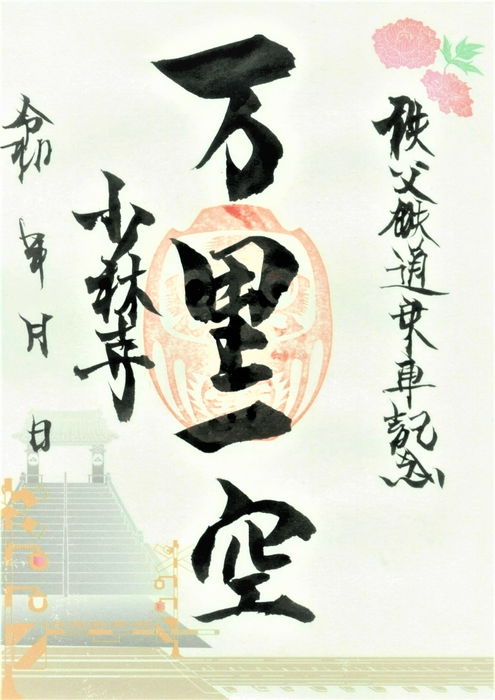 秩父鉄道乗車記念
万里一空
少林寺
令和 年 月 日